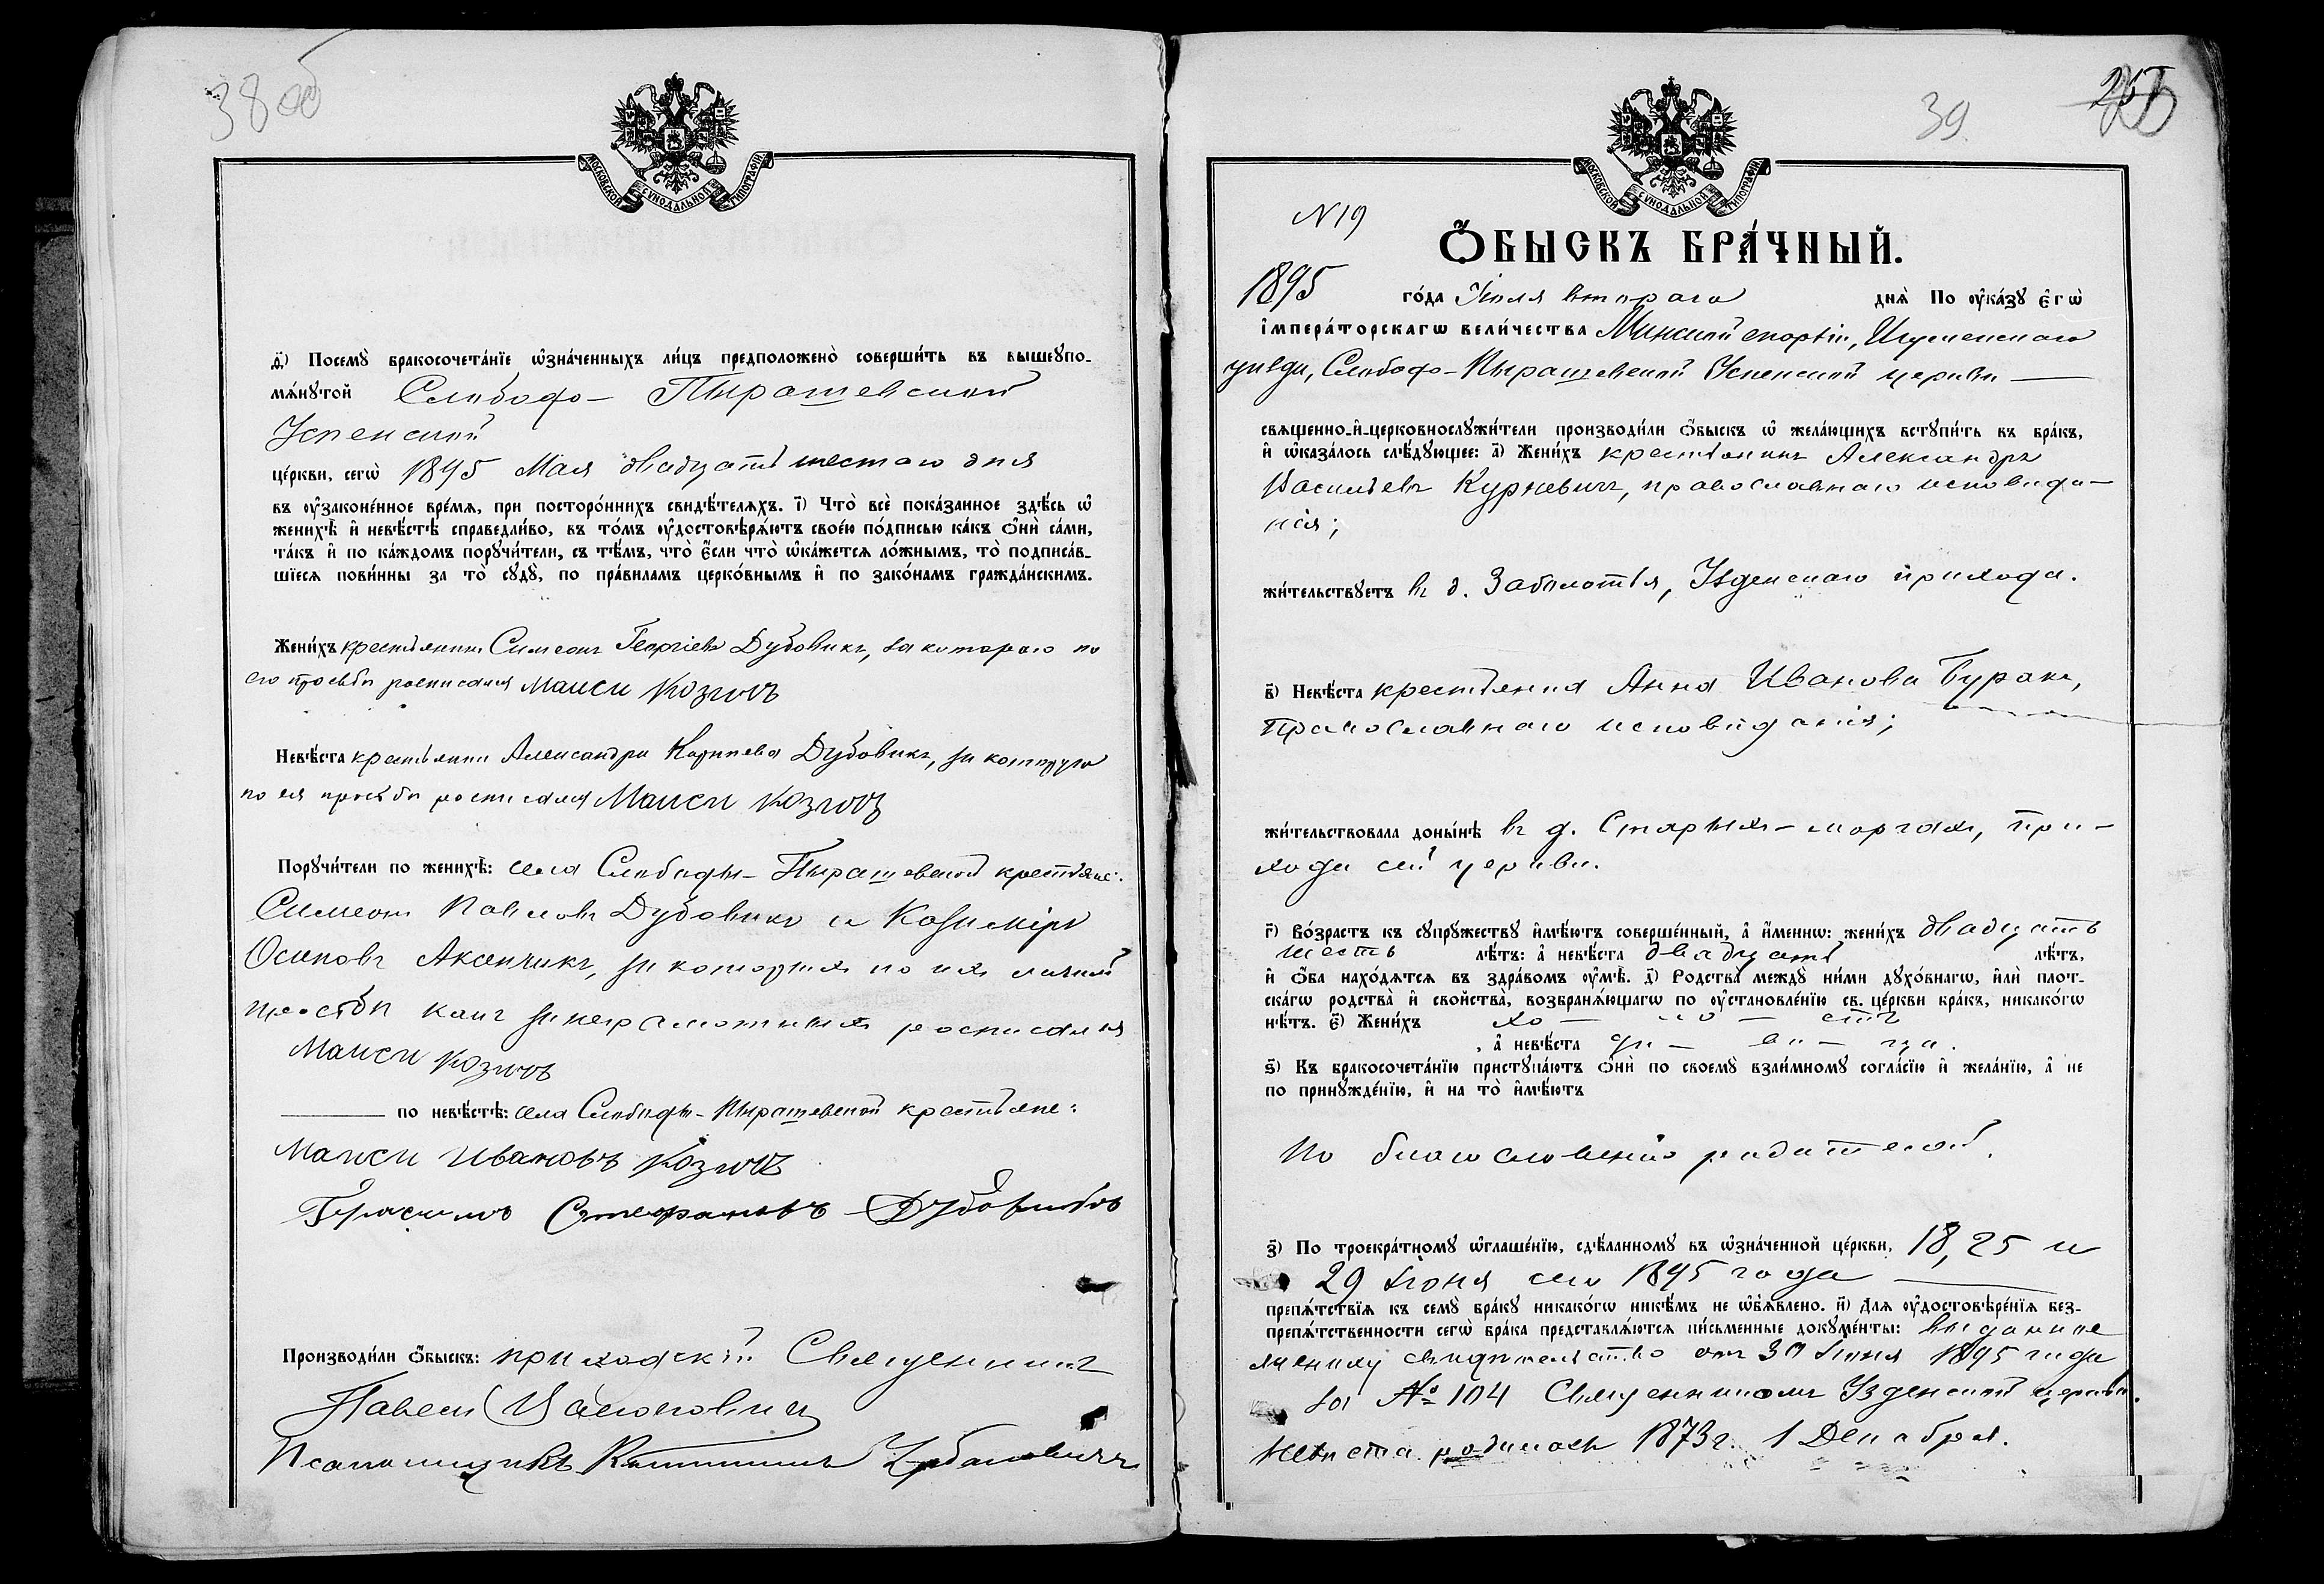 38 об
МОСКОВСКОЙ СѴНОДАЛЬНОЙ ТИПОГРАФІИ
ѳ҃) Посемꙋ̀ бракосочета́нїе ѡ҆зна́ченныхъ ли́цъ предположено̀ соверши́ть въ вышеꙋпо-
мѧ́нꙋтой Слободо-Пырашевской
Успенской
це́ркви, сегѡ̀ 1895 Мая двадцать шестого дня
въ ᲂу҆законе́нное вре́мѧ, при посторо́ннихъ свидѣ́телѧхъ. і҃) Что̀ всѐ пока́занное здѣ́сь ѡ҆
женихѣ̀ и҆ невѣ́стѣ справедли́во, въ то́мъ ᲂу҆достовѣрѧ́ютъ свое́ю по́дписью ка́къ ѻ҆нѝ са́ми,
та́къ и҆ по ка́ждомъ порꙋчи́тели, съ тѣ́мъ, что̀ є҆́сли что̀ ѡ҆ка́жетсѧ ло́жнымъ, то̀ подписа́в-
шїесѧ пови́нны за то̀ сꙋдꙋ̀, по пра́виламъ церко́внымъ и҆ по зако́намъ гражда́нскимъ.
Жени́хъ крестьянинъ Симеонъ Георгіевъ Дубовикъ, за котораго по
его просьбѣ росписался Маиси Козловъ
Невѣ́ста крестьянка Александра Дубовикъ, за которую
по ея просьбѣ росписался Маиси Козловъ
Порꙋчи́тели по женихѣ̀: села Слободы-Пырашевской крестьяне:
Симеонъ Павловъ Дубовикъ и Казиміръ
Осиповъ Аксючикъ, за которыхъ по ихъ личной
просьбѣ какъ за неграмотныхъ росписался
Маиси Козловъ
по невѣ́стѣ: села Слободы-Пырашевской крестьяне:
Маиси Ивановъ Козловъ
Герасимъ Стефановъ Дубовикъ
Производи́ли ѻ҆́быскъ: приходскій Священникъ
Павелъ
Псаломщикъ Урбановичъ
39
МОСКОВСКОЙ СѴНОДАЛЬНОЙ ТИПОГРАФІИ
N 19
Ѻ҆́БЫСКЪ БРА́ЧНЫЙ.
1895 го́да Іюля второго днѧ̀ По ᲂу҆ка́зꙋ є҆гѡ̀
і҆мпера́торскагѡ вели́чества Минской епархіи, Игуменскаго
уѣзда, Слободо-Пырашевской Успенской церкви
свѧще́нно-и҆-церковнослꙋжи́тели производи́ли ѻ҆́быскъ ѡ҆ жела́ющихъ встꙋпи́ть въ бра́къ,
и҆ ѡ҆каза́лось слѣ́дꙋющее: а҃) Жени́хъ крестьянинъ Александръ
Васильевъ Курневичъ, православнаго исповѣда-
нія;
жи́тельствꙋетъ въ д. Заболотья, Узденскаго прихода.
в҃) Невѣ́ста крестьянка Анна Иванова Буракъ,
православнаго исповѣданія;
жи́тельствовала доны́нѣ въ д. Старыхъ-моргахъ, при-
хода сей церкви.
г҃) Во́зрастъ къ сꙋпрꙋ́жествꙋ и҆мѣ́ютъ соверше́нный, а҆ и҆́менно: жени́хъ двадцать
шесть лѣ́тъ: а҆ невѣ́ста двадцать лѣ́тъ,
и҆ ѻ҆́ба нахо́дѧтсѧ въ здра́вомъ ᲂу҆мѣ̀. д҃) Родства̀ междꙋ̀ ни́ми дꙋхо́внагѡ, и҆лѝ плот-
ска́гѡ родства̀ и҆ свойства̀, возбранѧ́ющагѡ по ᲂу҆становле́нїю св. це́ркви бра́къ, никако́гѡ
нѣ́тъ. є҃) Жени́хъ хо — ло — стъ
, а҆ невѣ́ста дѣ — ви — ца.
ѕ҃) Къ бракосочета́нїю пристꙋпа́ютъ ѻ҆нѝ по своемꙋ̀ взаи́мномꙋ согла́сїю и҆ жела́нїю, а҆ не
по принꙋжде́нїю, и҆ на то̀ и҆мѣ́ютъ
По благословенію родителей.
з҃) По троекра́тномꙋ ѡ҆глаше́нїю, сдѣ́ланномꙋ въ ѡ҆зна́ченной це́ркви, 18, 25 и
29 Іюня сего 1895 года
препѧ́тствїѧ къ семꙋ̀ бра́кꙋ никако́гѡ никѣ́мъ не ѡ҆б̾ѧ́влено. и҃) Длѧ ᲂу҆достовѣре́нїѧ без-
препѧ́тственности сегѡ̀ бра́ка представлѧ́ютсѧ пи́сьменные докꙋме́нты: выданное
жениху свидѣтельство отъ 30 Іюня 1895 года
за № 104 Священникомъ Узденской церкви.
Невѣста родилась 1873 г. 1 Декабря.